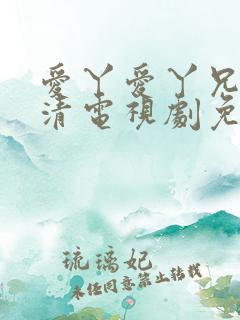 愛丫愛丫兄
清電視劇免
琉璃妃
未任同意禁止转载